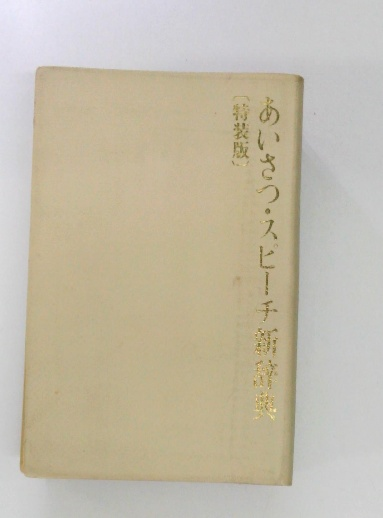 あいさつ・スピーチ新辞典
〔特装版〕